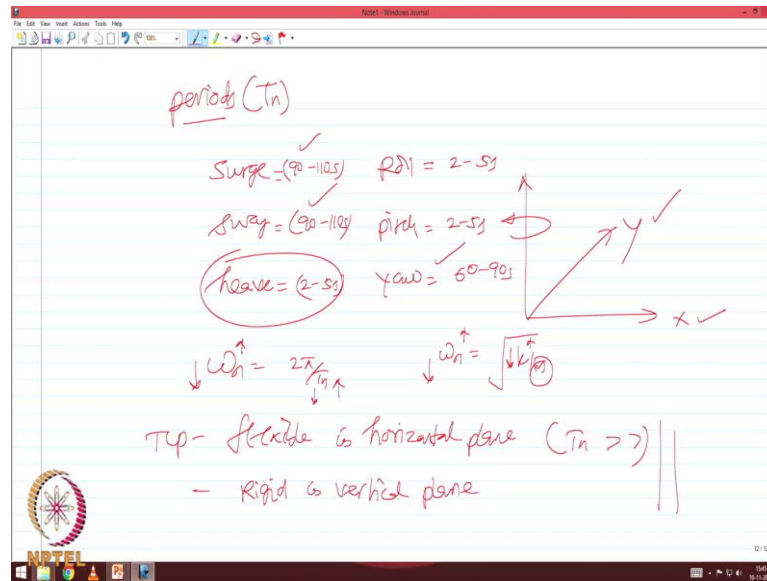 Note1 - Windows Journal
File Edit View Insert Actions Tools Help
periods (Tn)
Surge = (90-110s) Roll = 2-5s
Sway = (90-110s) pitch = 2-5s
heave = (2-5s) Yaw = 60-90s
Y
X
ωn = 2π/Tn ωn = √k/m
TLP - flexible is horizontal plane (Tn >>)
- Rigid is vertical plane
NPTEL
12/12
15:45